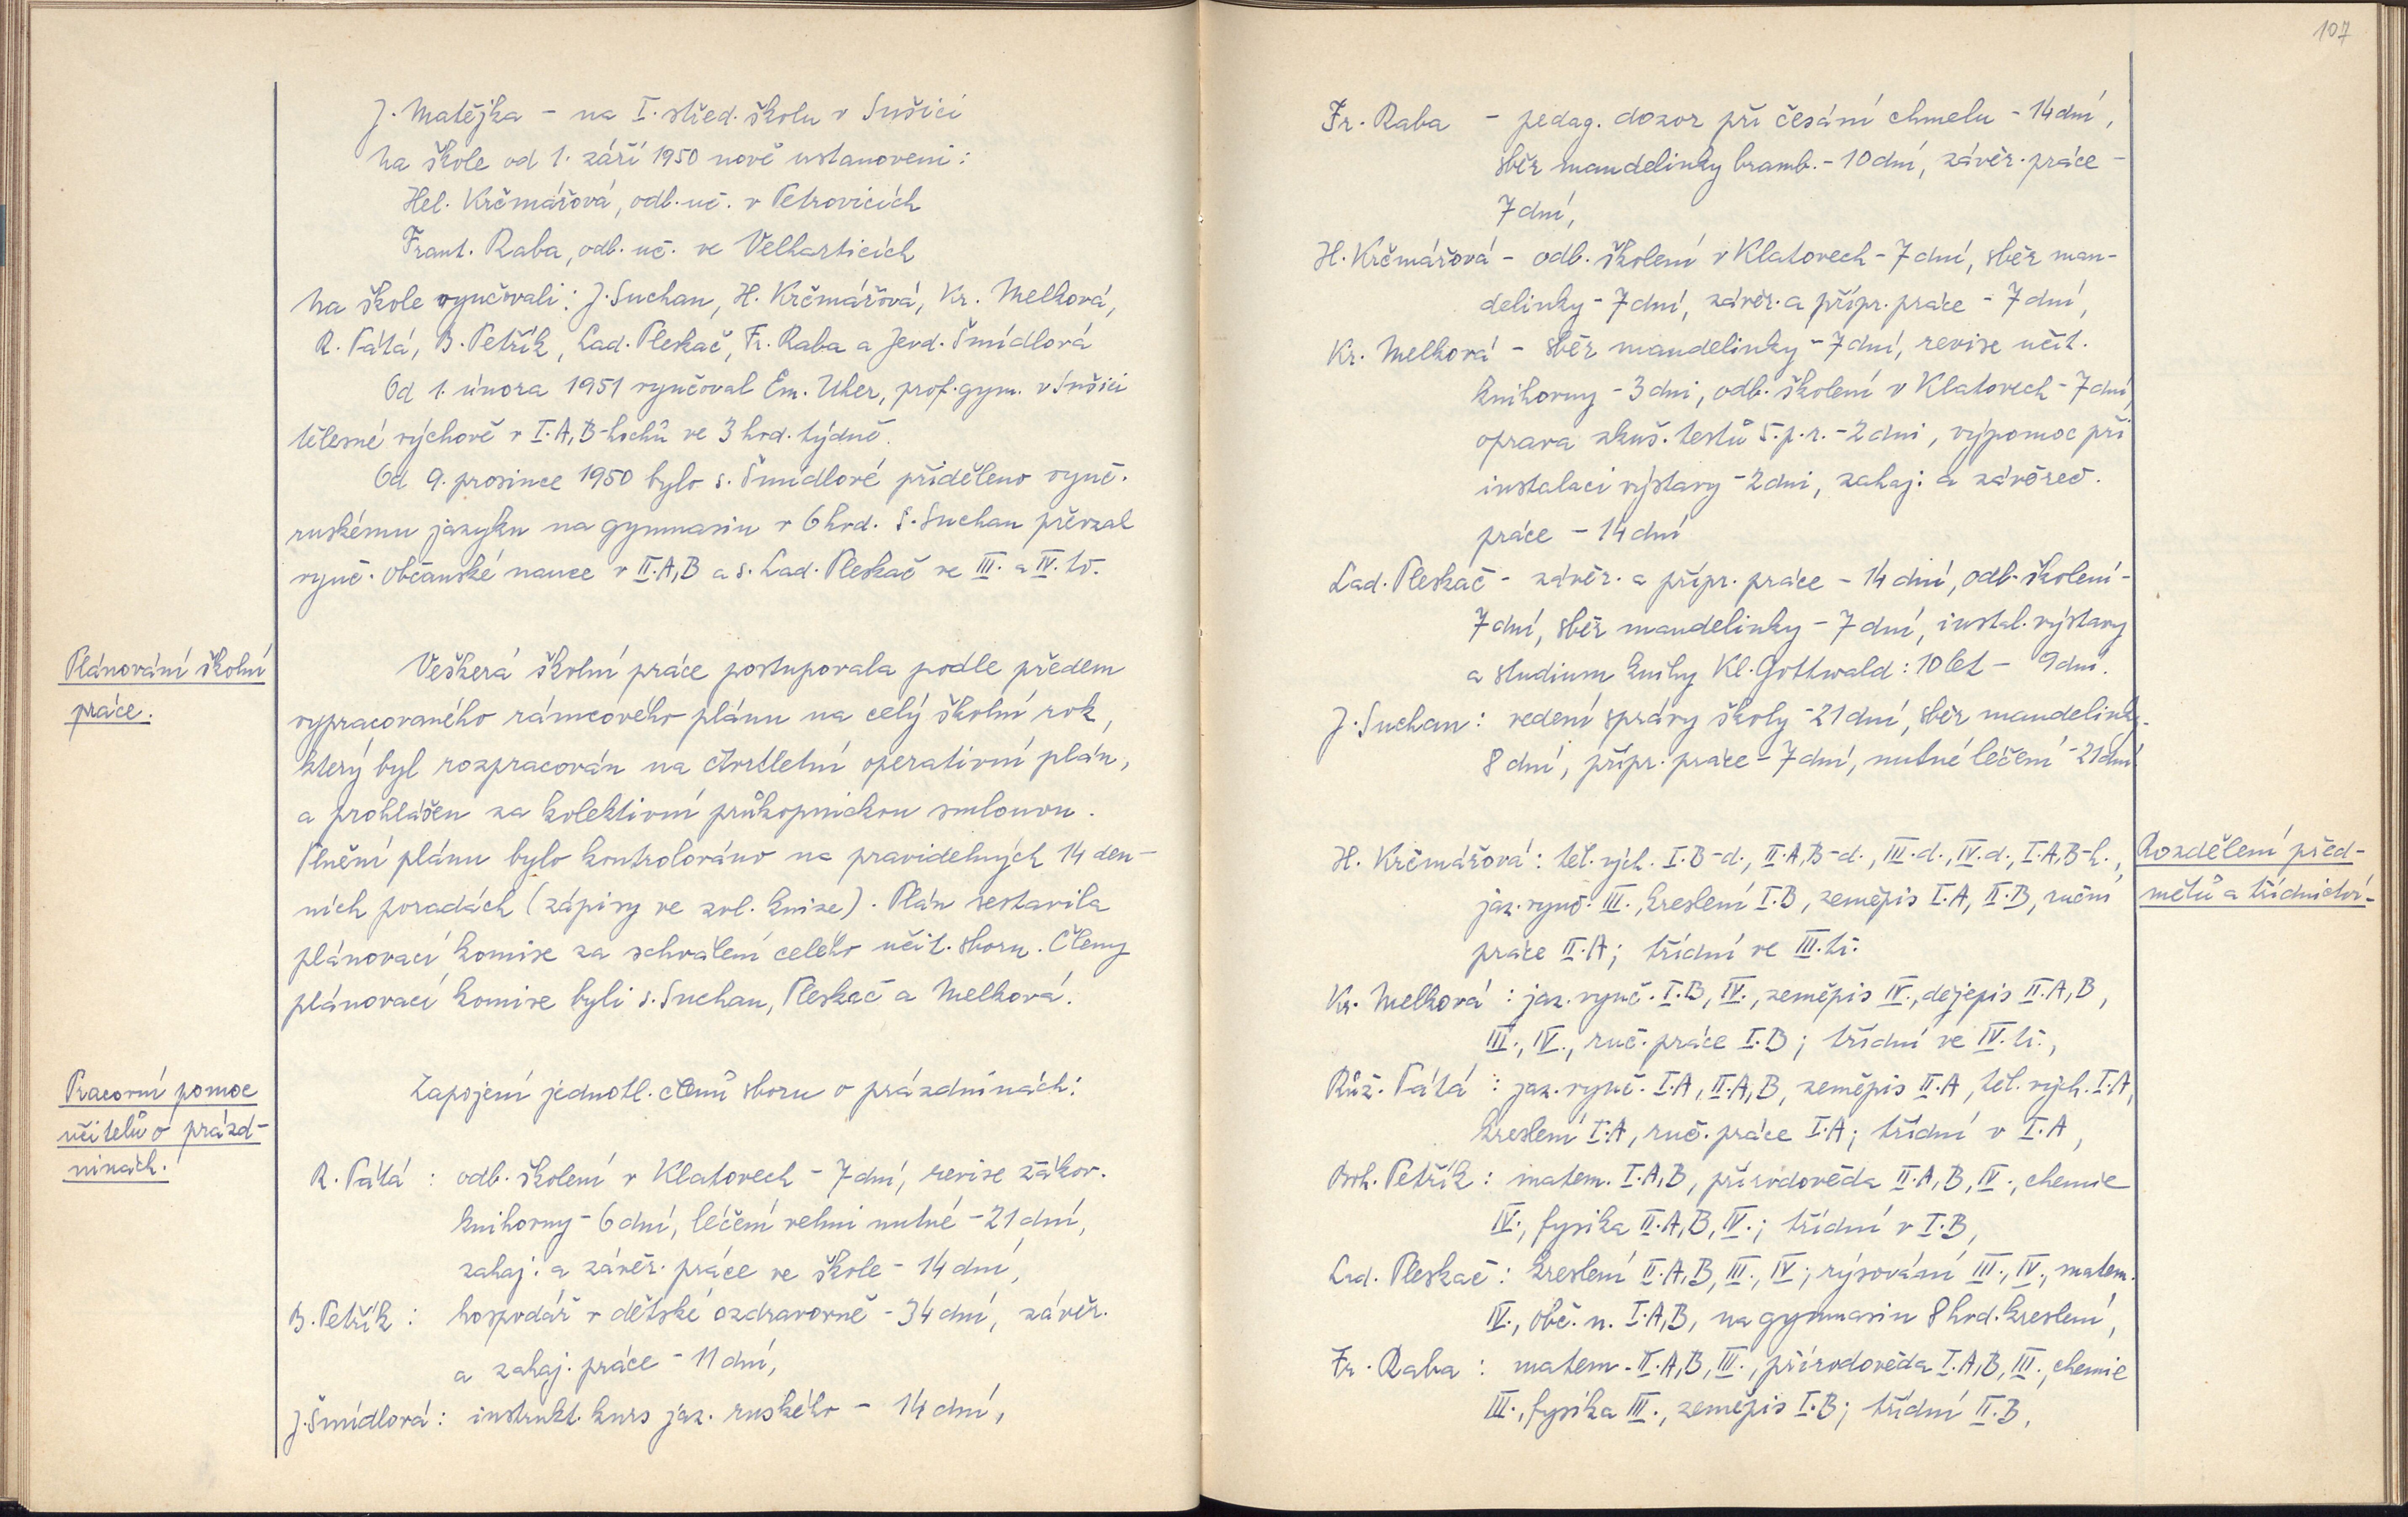 J. Matějka – na I. střed. školu v Sušici
Na škole od 1. září 1950 nově ustanoveni:
Hel. Krčmářová, odb. uč. v Petrovicích
Frant. Raba, odb. uč. ve Velharticích
Na škole vyučovali: J. Suchan, H. Krčmářová, Kr. Melková,
R. Pátá, B. Petřík, Lad. Pleskač, Fr. Raba a Jevd. Šmídlová
Od 1. února 1951 vyučoval Em. Uher, prof. gym. v Sušici
tělesné výchově v I. A, B - hochů ve 3 hod. týdně.
Od 9. prosince 1950 bylo s. Šmídlové přiděleno vyuč.
ruskému jazyku na gymnasiu v 6 hod. S. Suchan převzal
vyuč. občanské nauce v II. A, B a s. Lad. Pleskač ve III. a IV. tř.
Plánování školní
práce.
Veškerá školní práce postupovala podle předem
vypracovaného rámcového plánu na celý školní rok,
který byl rozpracován na čtvrtletní operativní plán,
a prohlášen za kolektivní průkopnickou smlouvu.
Plnění plánu bylo kontrolováno na pravidelných 14 den-
ních poradách (zápisy ve zvl. knize). Plán sestavila
plánovací komise za schválení celého učit. sboru. Členy
plánovací komise byli s. Suchan, Pleskač a Melková.
Pracovní pomoc
učitelů o prázd-
ninách.
Zapojení jednotl. členů sboru o prázdninách:
R. Pátá : odb. školení v Klatovech – 7 dní, revise žákov.
knihovny – 6 dní, léčení velmi nutné – 21 dní,
zahaj. a závěr. práce ve škole – 14 dní,
B. Petřík : hospodář v dětské ozdravovně – 34 dní, závěr.
a zahaj. práce – 11 dní,
J. Šmídlová : instrukt. kurs jaz. ruského – 14 dní,
107
Fr. Raba – pedag. dozor při česání chmelu – 14 dní,
sběr mandelinky bramb. – 10 dní, závěr. práce –
7 dní,
H. Krčmářová – odb. školení v Klatovech – 7 dní, sběr man-
delinky – 7 dní, závěr. a přípr. práce – 7 dní,
Kr. Melková – sběr mandelinky – 7 dní, revise učit.
knihovny – 3 dni, odb. školení v Klatovech – 7 dní,
oprava zkuš. testů 5. p. r. – 2 dni, výpomoc při
instalaci výstavy – 2 dni, zahaj. a závěreč.
práce – 14 dní
Lad. Pleskač – závěr. a přípr. práce – 14 dní, odb. školení –
7 dní, sběr mandelinky – 7 dní, instal. výstavy
a studium knihy Kl. Gottwald : 10 let – 9 dní.
J. Suchan : vedení správy školy – 21 dní, sběr mandelinky –
8 dní, přípr. práce – 7 dní, nutné léčení – 21 dní.
Rozdělení před-
mětů a třídnictví.
H. Krčmářová : těl. vých. I. B – d., II. A, B – d., III. d., IV. d., I. A, B – h.,
jaz. vyuč. III., kreslení I. B, zeměpis I. A, II. B, ruční
práce II. A; třídní ve III. tř.
Kr. Melková : jaz. vyuč. I. B, IV., zeměpis IV., dějepis II. A, B,
III., IV., ruč. práce I. B; třídní ve IV. tř.,
Růž. Pátá : jaz. vyuč. I. A, II. A, B, zeměpis II. A, těl. vých. I. A,
kreslení I. A, ruč. práce I. A; třídní v I. A,
Boh. Petřík : matem. I. A, B, přírodověda II. A, B, IV., chemie
IV., fysika II. A, B, IV.; třídní v I. B,
Lad. Pleskač : kreslení II. A, B, III., IV.; rýsování III., IV., matem.
IV., obč. n. I. A, B, na gymnasiu 8 hod. kreslení,
Fr. Raba : matem. II. A, B, III., přírodověda I. A, B, III., chemie
III., fysika III., zeměpis I. B; třídní II. B,